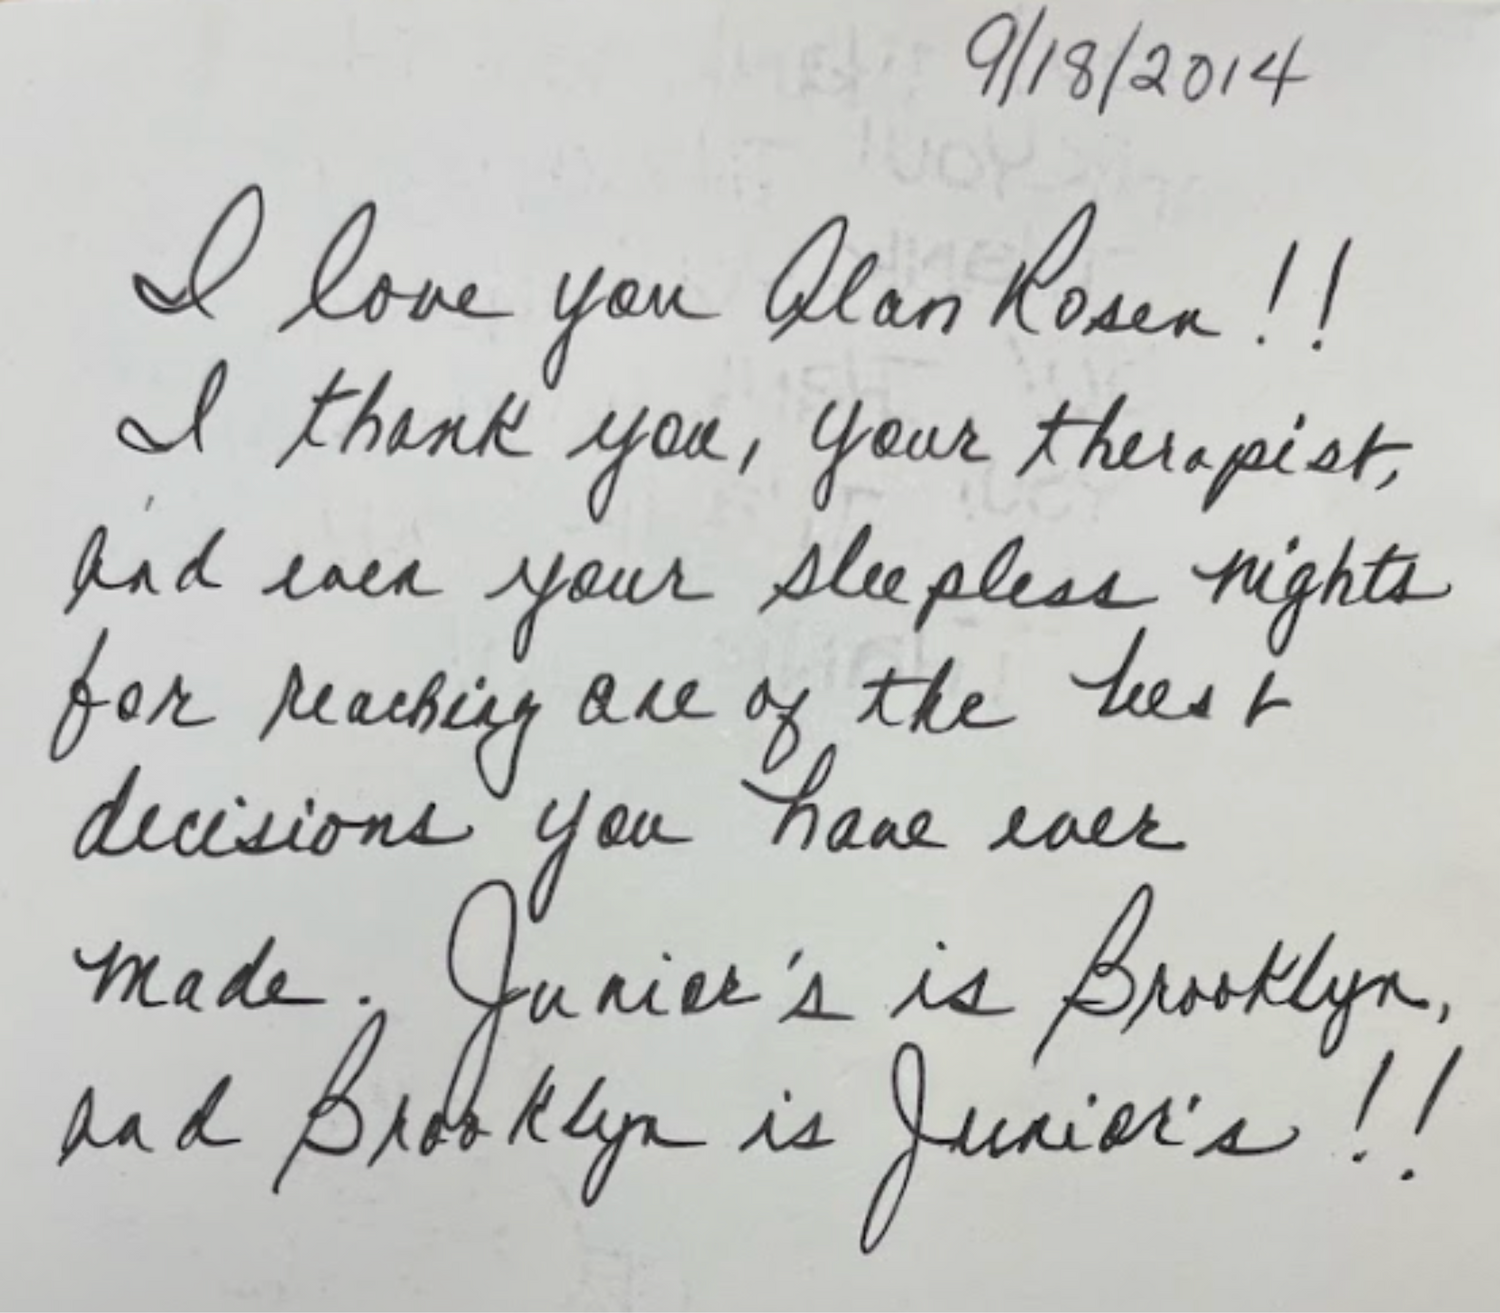 9/18/2014
I love you Alan Rosen!!
I thank you, your therapist,
and even your sleepless nights
for reaching one of the best
decisions you have ever
made. Junior's is Brooklyn,
and Brooklyn is Junior's!!